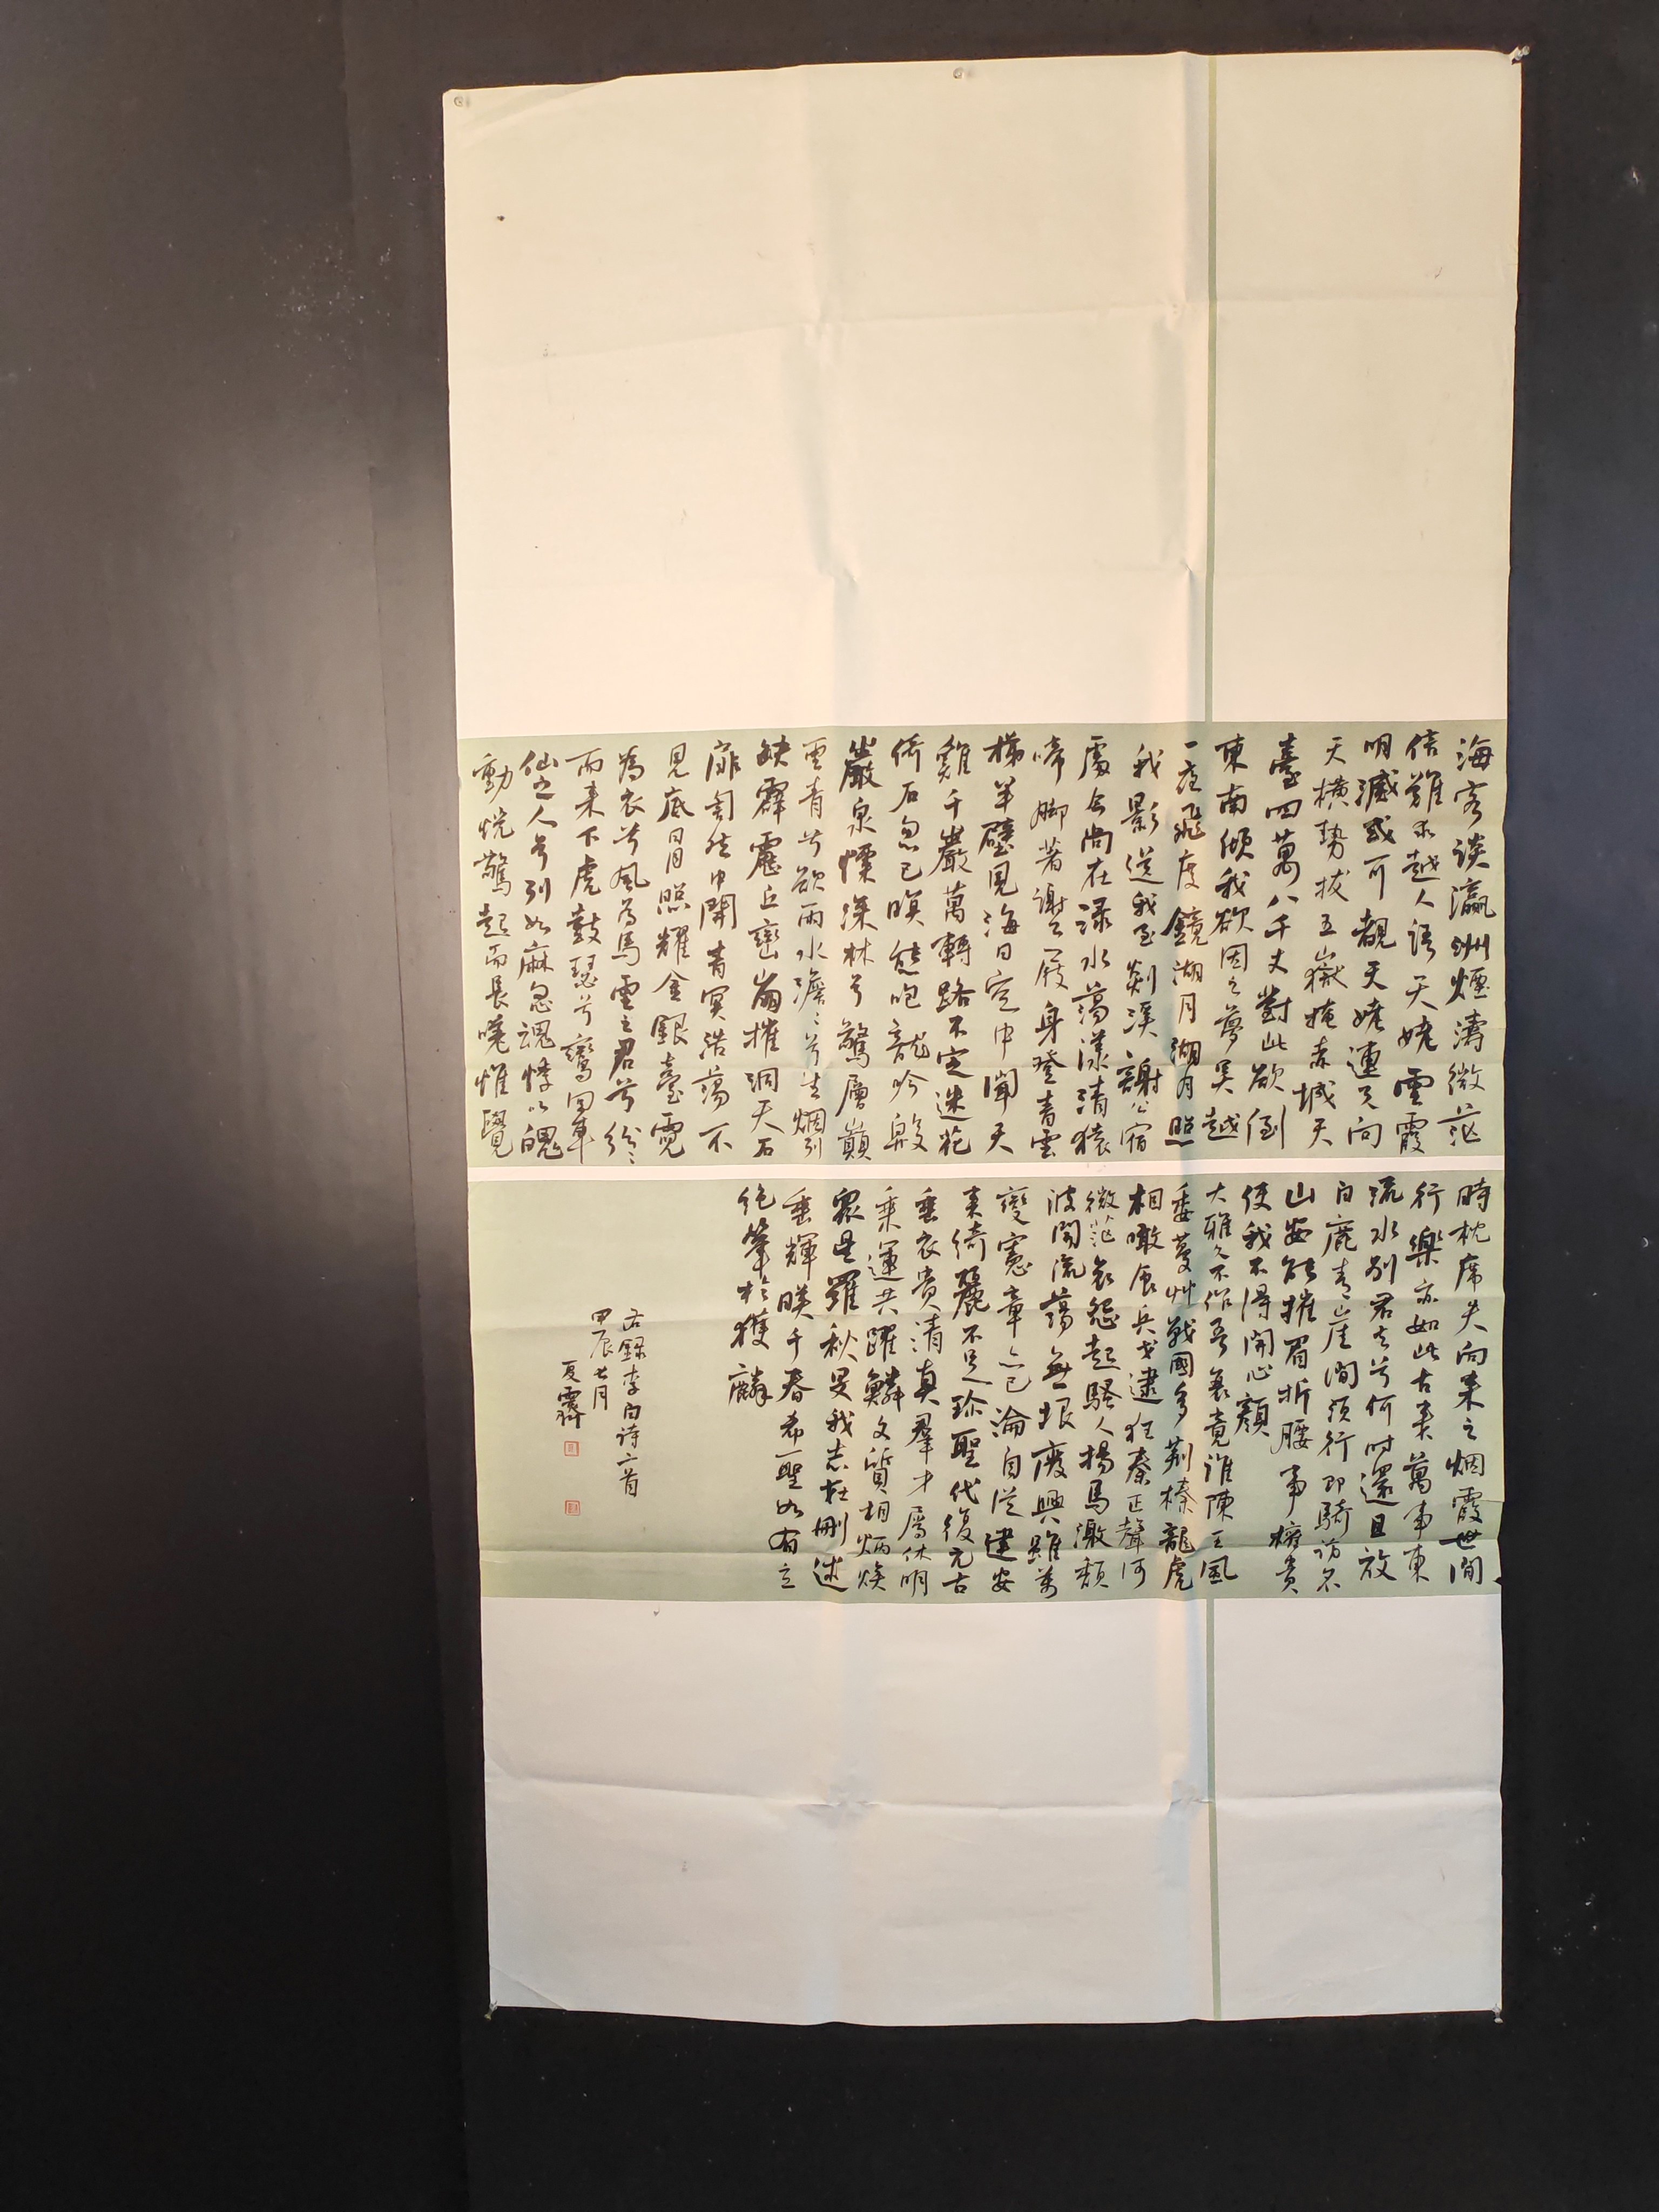 海客談瀛洲煙濤微茫
信難求越人語天姥雲霞
明滅或可覩天姥連天向
天橫勢拔五嶽掩赤城天
臺四萬八千丈對此欲倒
東南傾我欲因之夢吳越
一夜飛度鏡湖月湖月照
我影送我至剡溪謝公宿
處今尚在淥水蕩漾清猿
啼腳著謝公屐身登青雲
梯半壁見海日空中聞天
雞千巖萬轉路不定迷花
倚石忽已暝熊咆龍吟殷
巖泉慄深林兮驚層巔
雲青兮欲雨水澹澹兮生煙列
缺霹靂丘巒崩摧洞天石
扉訇然中開青冥浩蕩不
見底日月照耀金銀臺霓
為衣兮風為馬雲之君兮紛紛
而來下虎鼓瑟兮鸞回車
仙之人兮列如麻忽魂悸以魄
動怳驚起而長嗟惟覺
時枕席失向來之烟霞世間
行樂亦如此古來萬事東
流水別君去兮何時還且放
白鹿青崖間須行即騎訪名
山安能摧眉折腰事權貴
使我不得開心顏
大雅久不作吾衰竟誰陳王風
委蔓艸戰國多荊榛龍虎
相啖食兵戈逮狂秦正聲何
微茫哀怨起騷人揚馬激頹
波開流蕩無垠廢興雖萬
變憲章亦已淪自從建安
來綺麗不足珍聖代復元古
垂衣貴清真羣才屬休明
乘運共躍鱗文質相炳煥
眾星羅秋旻我志在刪述
垂輝映千春希聖如有立
絕筆於獲麟
右錄李白詩二首
甲辰七月
夏霽